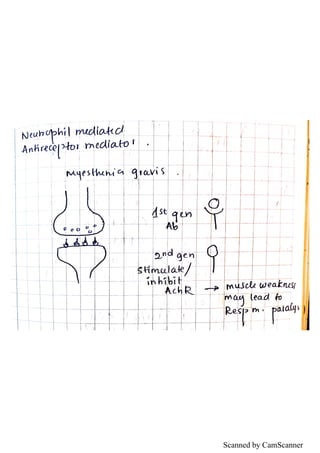 Neutrophil mediated
Antireceptor mediator.
Myesthenia gravis.
1st gen
Ab
2nd gen
Stimulate/
inhibit
AchR → muscle weakness
may lead to
Resp m. paralys
Scanned by CamScanner